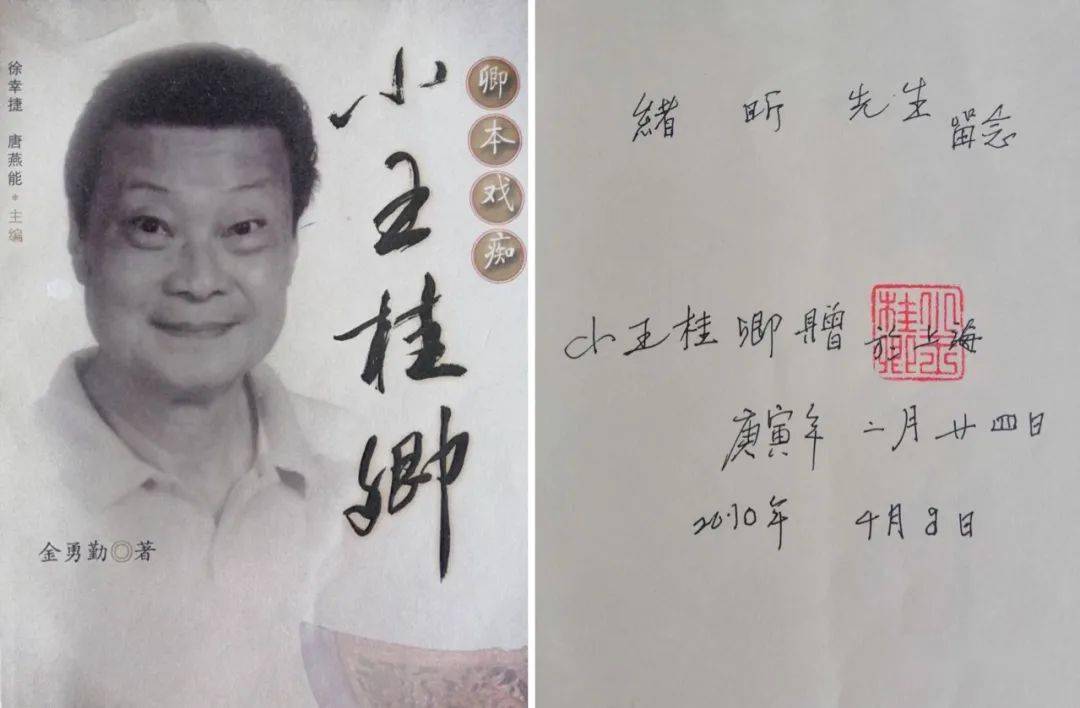 徐幸捷 唐燕能*主编
卿本戏痴
小王桂卿
金勇勤◎著
緒昕先生留念
小王桂卿贈於上海
小王桂卿
庚寅年 二月廿四日
2010年 4月8日